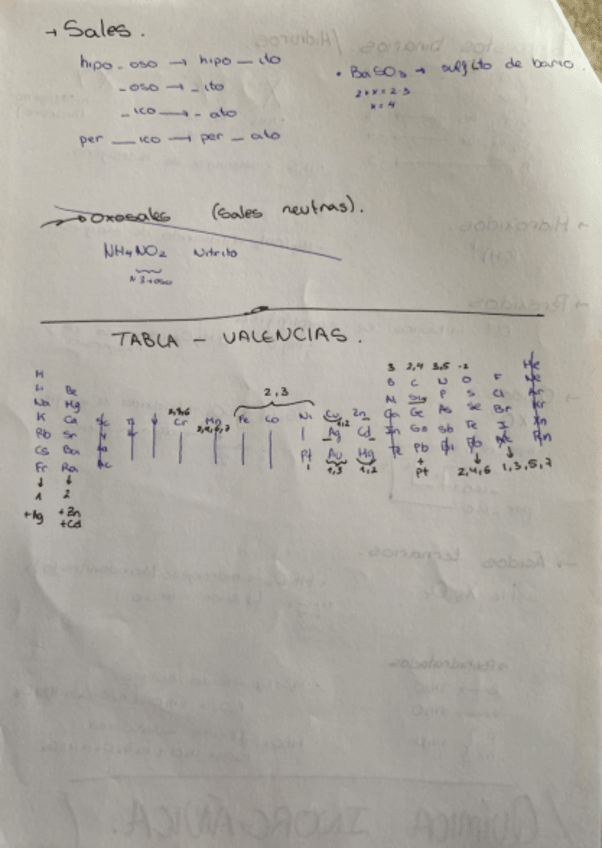 → Sales.
hipo-oso → hipo-ito
-oso → -ito
-ico → -ato
per -ico → per -ato
• BaSO3 → sulfito de bario.
2+x=2·3
x=4
→ Oxosales (Sales neutras).
NH4NO2 Nitrito
N3+oso
TABLA - VALENCIAS.
3 2,4 3,5 -2
H He
Li Be B C N O F Ne
Na Mg Al Si P S Cl Ar
2,3
K Ca Sc Ti V Cr Mn Fe Co Ni Cu Zn Ga Ge As Se Br Kr
2,3,6
1,2
Rb Sr Ag Cd In Sn Sb Te I Xe
Cs Ba Pt Au Hg Pb Rn
Fr Ra Ac
1,3 1,2
↓ ↓ + Pt 2,4,6 1,3,5,7
1 2
+Ag +Zn
+Cd